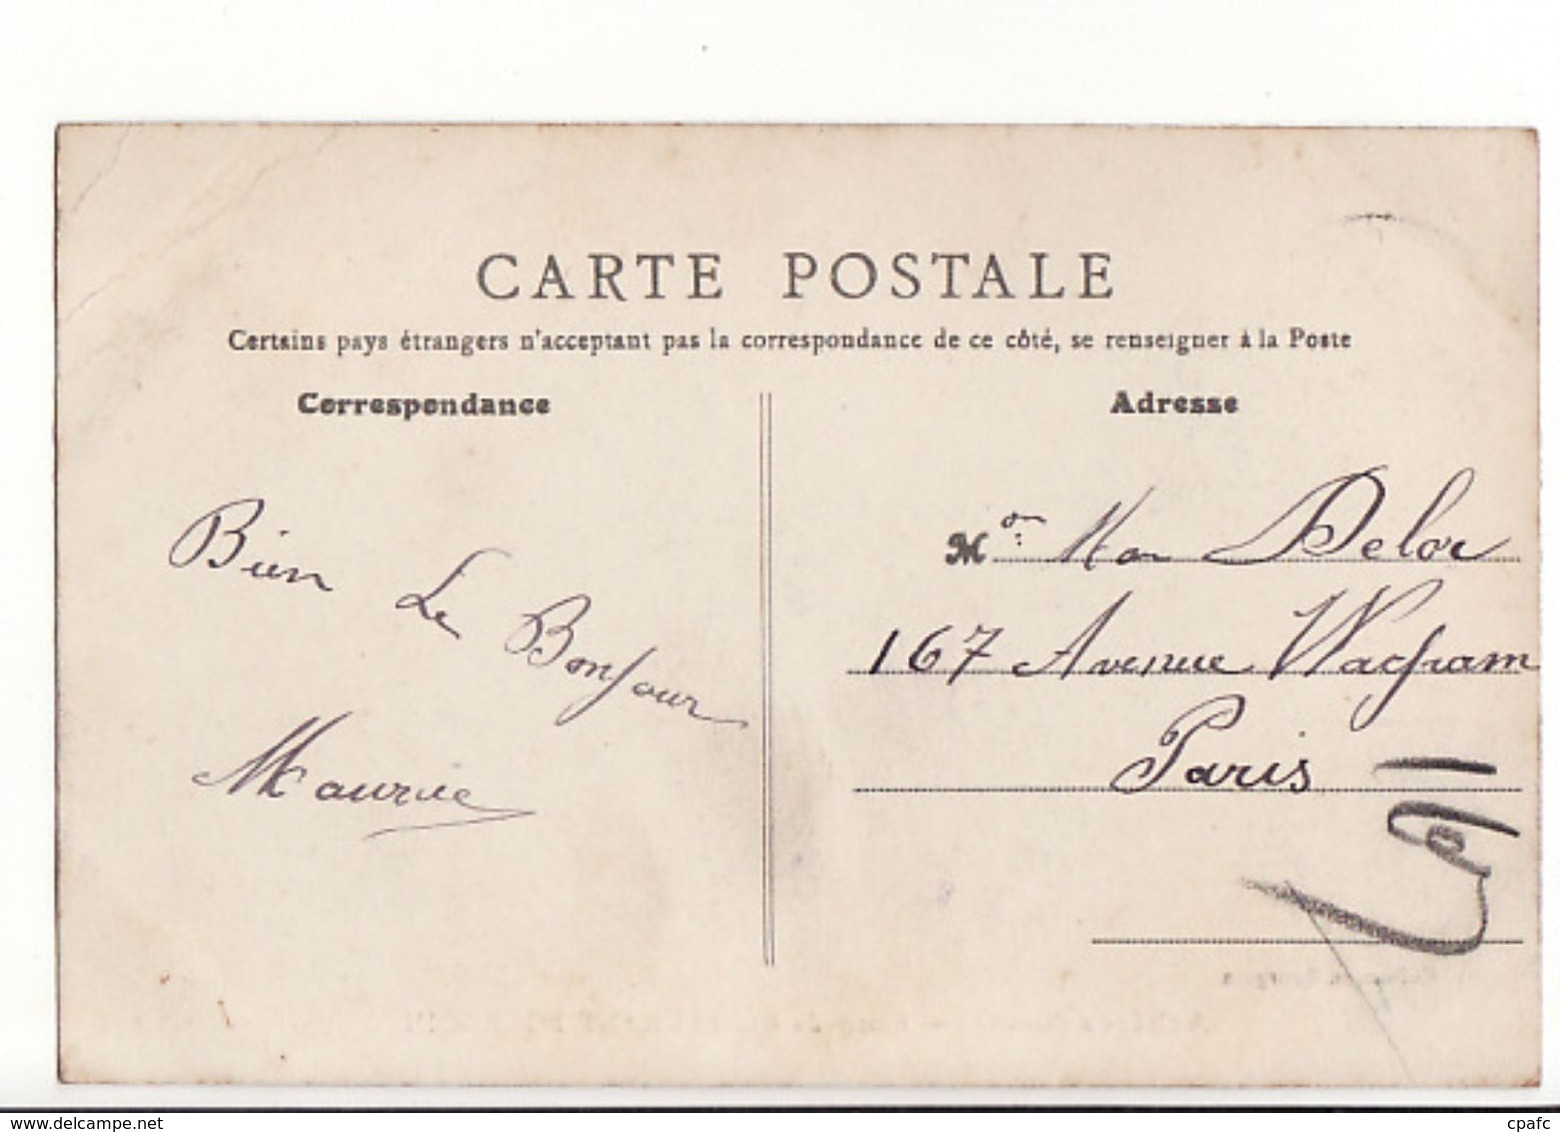 CARTE POSTALE
Certains pays étrangers n'acceptant pas la correspondance de ce côté, se renseigner à la Poste
Correspondance
Bien Le Bonjour
Maurice
Adresse
M Delor
167 Avenue Wagram
Paris
delcampe.net
cpafc